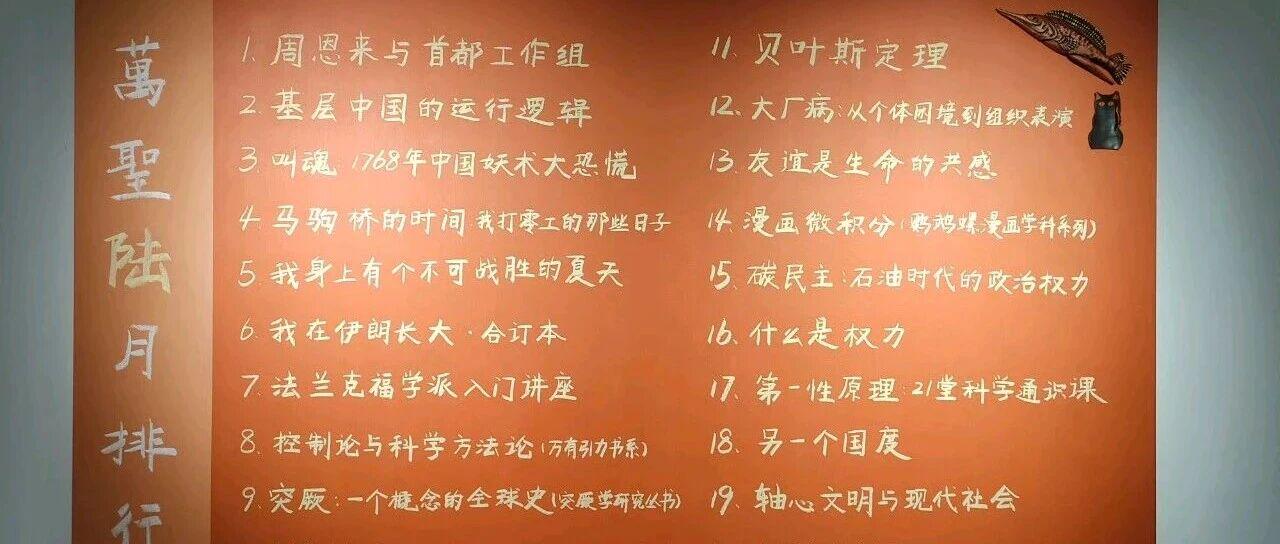 萬聖陆月排行
1. 周恩来与首都工作组
2. 基层中国的运行逻辑
3. 叫魂:1768年中国妖术大恐慌
4. 马驹桥的时间:我打零工的那些日子
5. 我身上有个不可战胜的夏天
6. 我在伊朗长大·合订本
7. 法兰克福学派入门讲座
8. 控制论与科学方法论(万有引力书系)
9. 突厥:一个概念的全球史(突厥学研究丛书)
11. 贝叶斯定理
12. 大厂病:从个体困境到组织表演
13. 友谊是生命的共感
14. 漫画微积分(鹦鹉螺漫画学科系列)
15. 碳民主:石油时代的政治权力
16. 什么是权力
17. 第一性原理:21堂科学通识课
18. 另一个国度
19. 轴心文明与现代社会